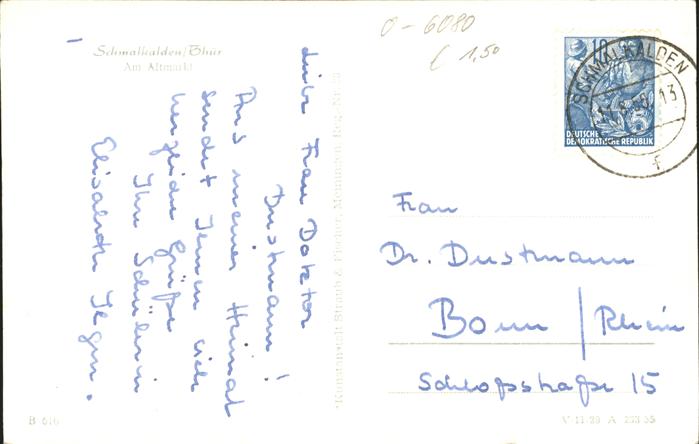 Schmalkalden/Thür
Am Altmarkt
Liebe Frau Doktor
Dustmann!
Aus meiner Heimat
sendet Ihnen viele
herzliche Grüße
Ihre Schülerin
Elisabeth
B 616
Kunstanstalt Straub & Fischer, Meiningen
0-6080
£ 1,50
10
DEUTSCHE
DEMOKRATISCHE REPUBLIK
SCHMALKALDEN
13
f
Frau
Dr. Dustmann
Bonn/Rhein
Schloßstraße 15
V 11/29 A